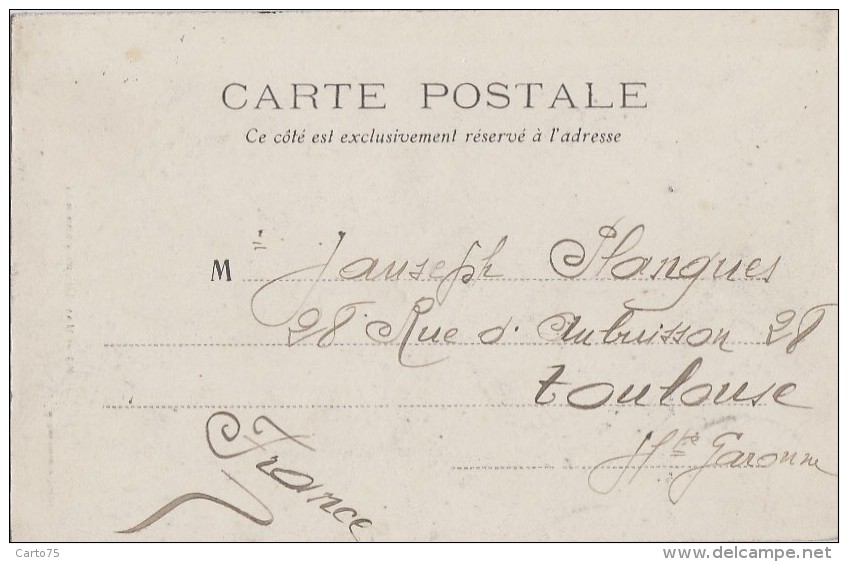 CARTE POSTALE
Ce côté est exclusivement réservé à l'adresse
M Jauseph Plangues
28 Rue d'Aubuisson 28
Toulouse
Hte Garonne
France
Carto75
www.delcampe.net